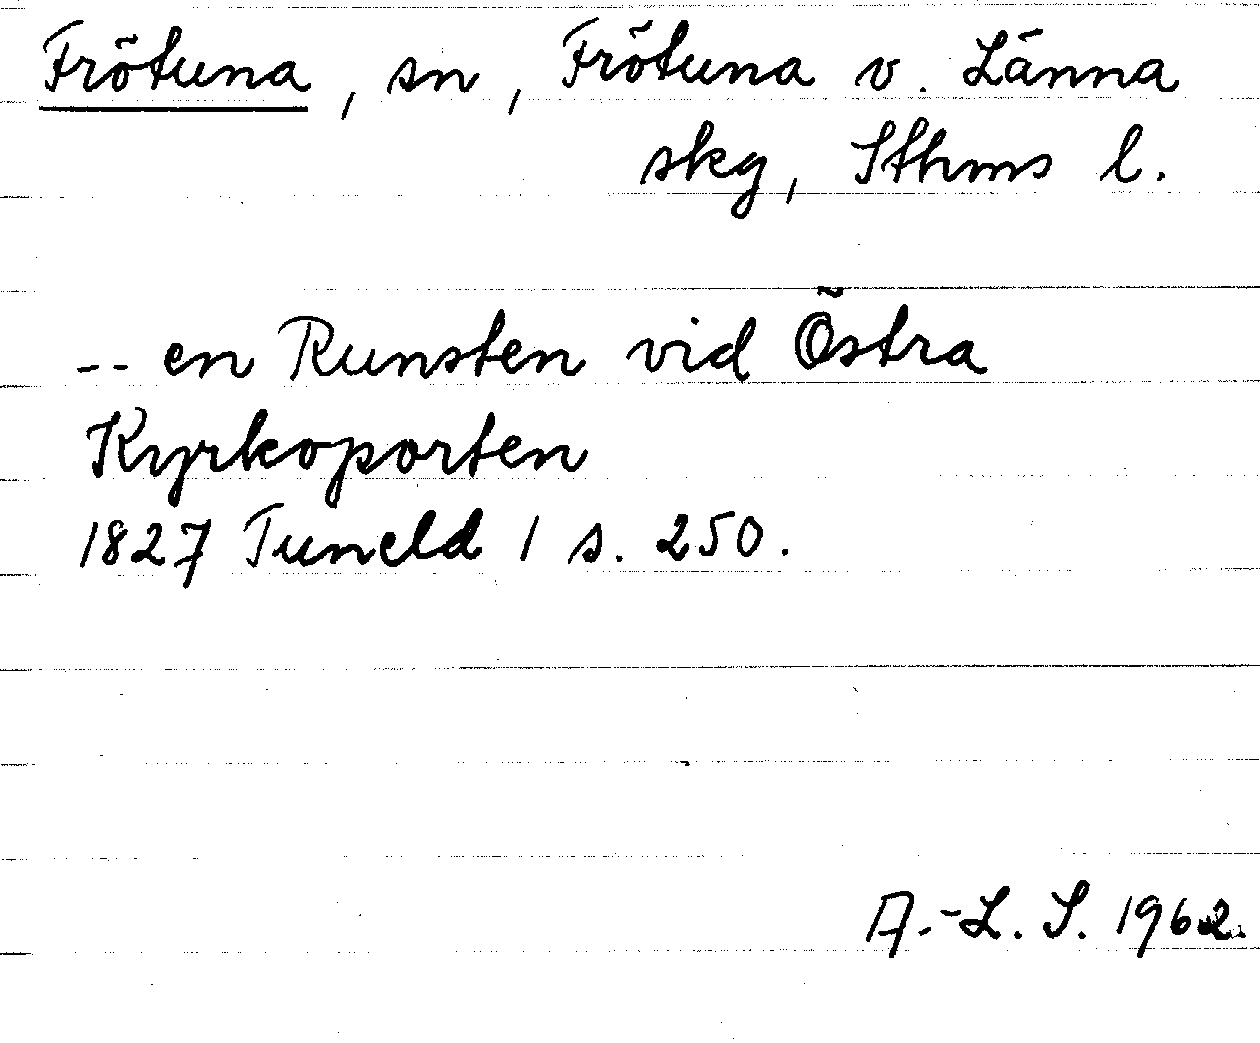 Frötuna, sn, Frötuna v. Länna
skg, Sthms l.
-- en Runsten vid Östra
Kyrkoporten
1827 Tuneld 1 s. 250.
A.-L. S. 1962.